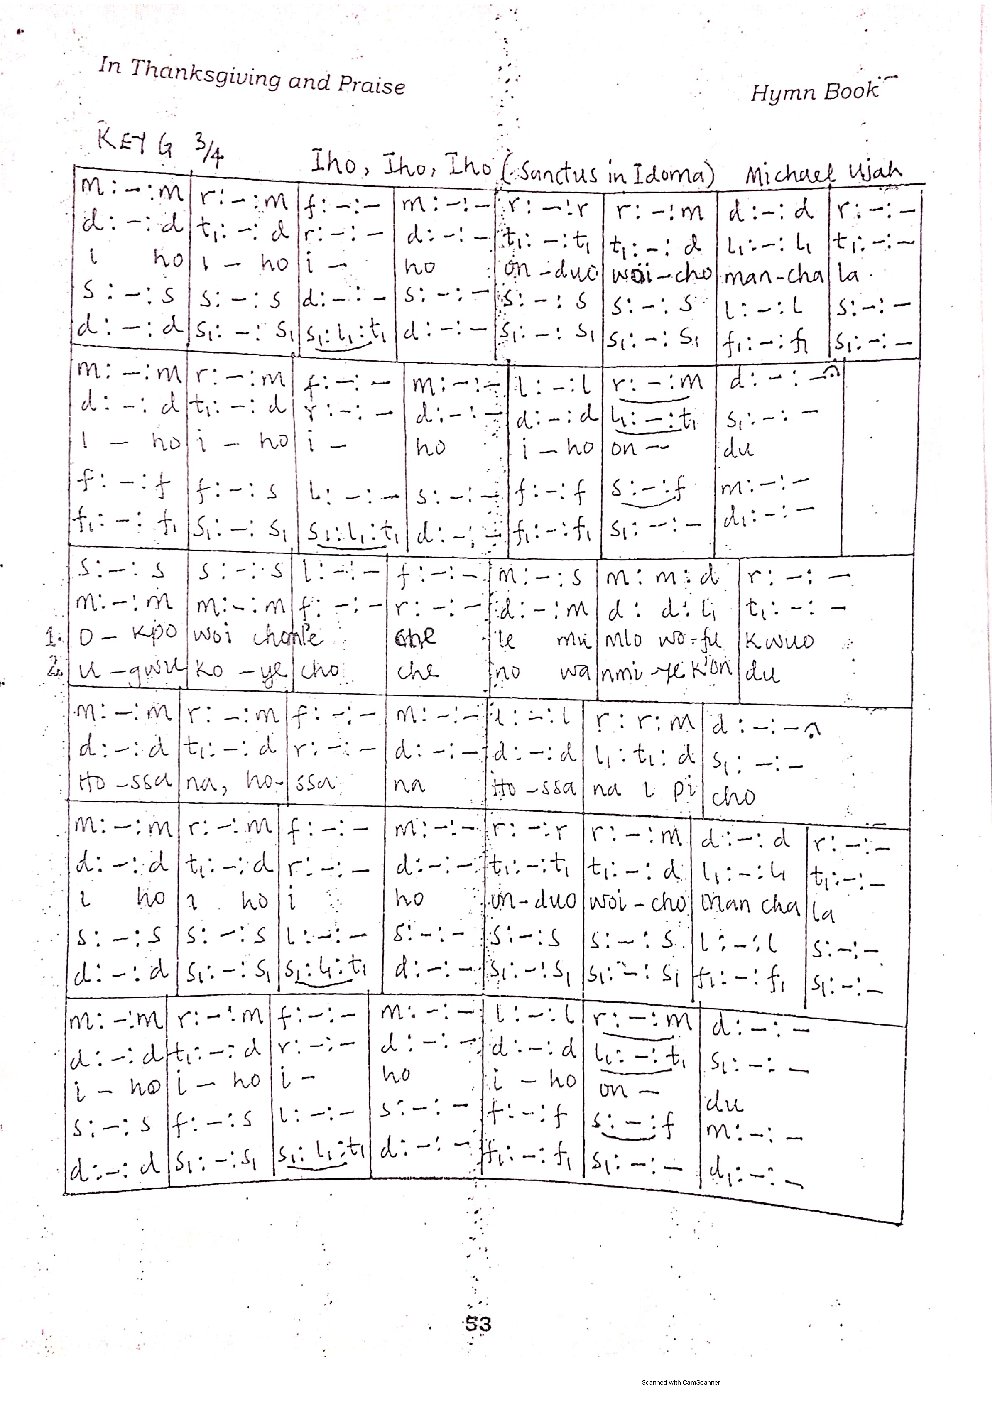 In Thanksgiving and Praise Hymn Book
KEY G 3/4 Iho, Iho, Iho (Sanctus in Idoma) Michael Ujah
m : – : m | r : – : m | f : – : – | m : – : – | r : – : r | r : – : m | d : – : d | r : – : –
d : – : d | t₁ : – : d | r : – : – | d : – : – | t₁ : – : t₁ | t₁ : – : d | l₁ : – : l₁ | t₁ : – : –
i ho | i – ho | i – | ho | on – duo | woi – cho | man – cha | la
s : – : s | s : – : s | d : – : – | s : – : – | s : – : s | s : – : s | l : – : l | s : – : –
d : – : d | s₁ : – : s₁ | s₁ : l₁ : t₁ | d : – : – | s₁ : – : s₁ | s₁ : – : s₁ | f₁ : – : f₁ | s₁ : – : –
m : – : m | r : – : m | f : – : – | m : – : – | l : – : l | r : – : m | d : – : –
d : – : d | t₁ : – : d | r : – : – | d : – : – | d : – : d | l₁ : – : t₁ | s₁ : – : –
i – ho | i – ho | i – | ho | i – ho | on – | du
f : – : f | f : – : s | l : – : – | s : – : – | f : – : f | s : – : f | m : – : –
f₁ : – : f₁ | s₁ : – : s₁ | s₁ : l₁ : t₁ | d : – : – | f₁ : – : f₁ | s₁ : – : – | d₁ : – : –
s : – : s | s : – : s | l : – : – | f : – : – | m : – : s | m : m : d | r : – : –
m : – : m | m : – : m | f : – : – | r : – : – | d : – : m | d : d : l₁ | t₁ : – : –
1. O – kpo | woi cho | n'le | che | le mu | mlo wo – fu | kwuo
2. U – gwu | ko – ye | cho | che | no wa | nmi – ye k'on | du
m : – : m | r : – : m | f : – : – | m : – : – | l : – : l | r : r : m | d : – : –
d : – : d | t₁ : – : d | r : – : – | d : – : – | d : – : d | l₁ : t₁ : d | s₁ : – : –
Ho – ssa | na, ho – | ssa | na | Ho – ssa | na i pi | cho
m : – : m | r : – : m | f : – : – | m : – : – | r : – : r | r : – : m | d : – : d | r : – : –
d : – : d | t₁ : – : d | r : – : – | d : – : – | t₁ : – : t₁ | t₁ : – : d | l₁ : – : l₁ | t₁ : – : –
i ho | i ho | i | ho | on – duo | woi – cho | man cha | la
s : – : s | s : – : s | l : – : – | s : – : – | s : – : s | s : – : s | l : – : l | s : – : –
d : – : d | s₁ : – : s₁ | s₁ : l₁ : t₁ | d : – : – | s₁ : – : s₁ | s₁ : – : s₁ | f₁ : – : f₁ | s₁ : – : –
m : – : m | r : – : m | f : – : – | m : – : – | l : – : l | r : – : m | d : – : –
d : – : d | t₁ : – : d | r : – : – | d : – : – | d : – : d | l₁ : – : t₁ | s₁ : – : –
i – ho | i – ho | i – | ho | i – ho | on – | du
s : – : s | f : – : s | l : – : – | s : – : – | f : – : f | s : – : f | m : – : –
d : – : d | s₁ : – : s₁ | s₁ : l₁ : t₁ | d : – : – | f₁ : – : f₁ | s₁ : – : – | d₁ : – : –
53
Scanned with CamScanner